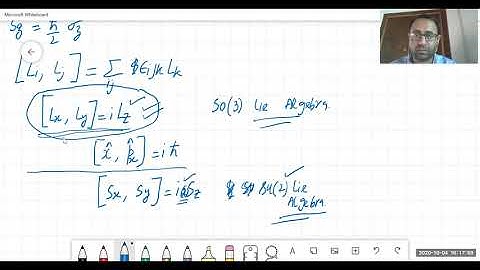 Microsoft Whiteboard
Sz = ħ/2 σz
[Li, Lj] = Σij εijk Lk
[Lx, Ly] = iLz
SO(3) Lie Algebra
[x̂, p̂x] = iħ
[Sx, Sy] = iSz
SU(2) Lie
Algebra
2020-10-04 16:17:59